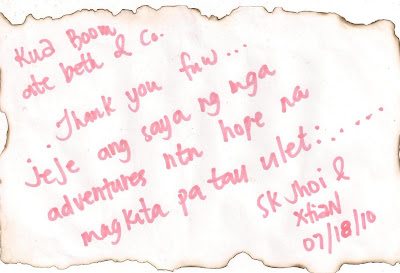 Kua Boom
ate beth & Co.
.. Thank you fuw...
jeje ang saya ng mga
adventures ntn hope na
magkita pa tau ulet:.....
SK Jhoi &
XtiaN
07/18/10